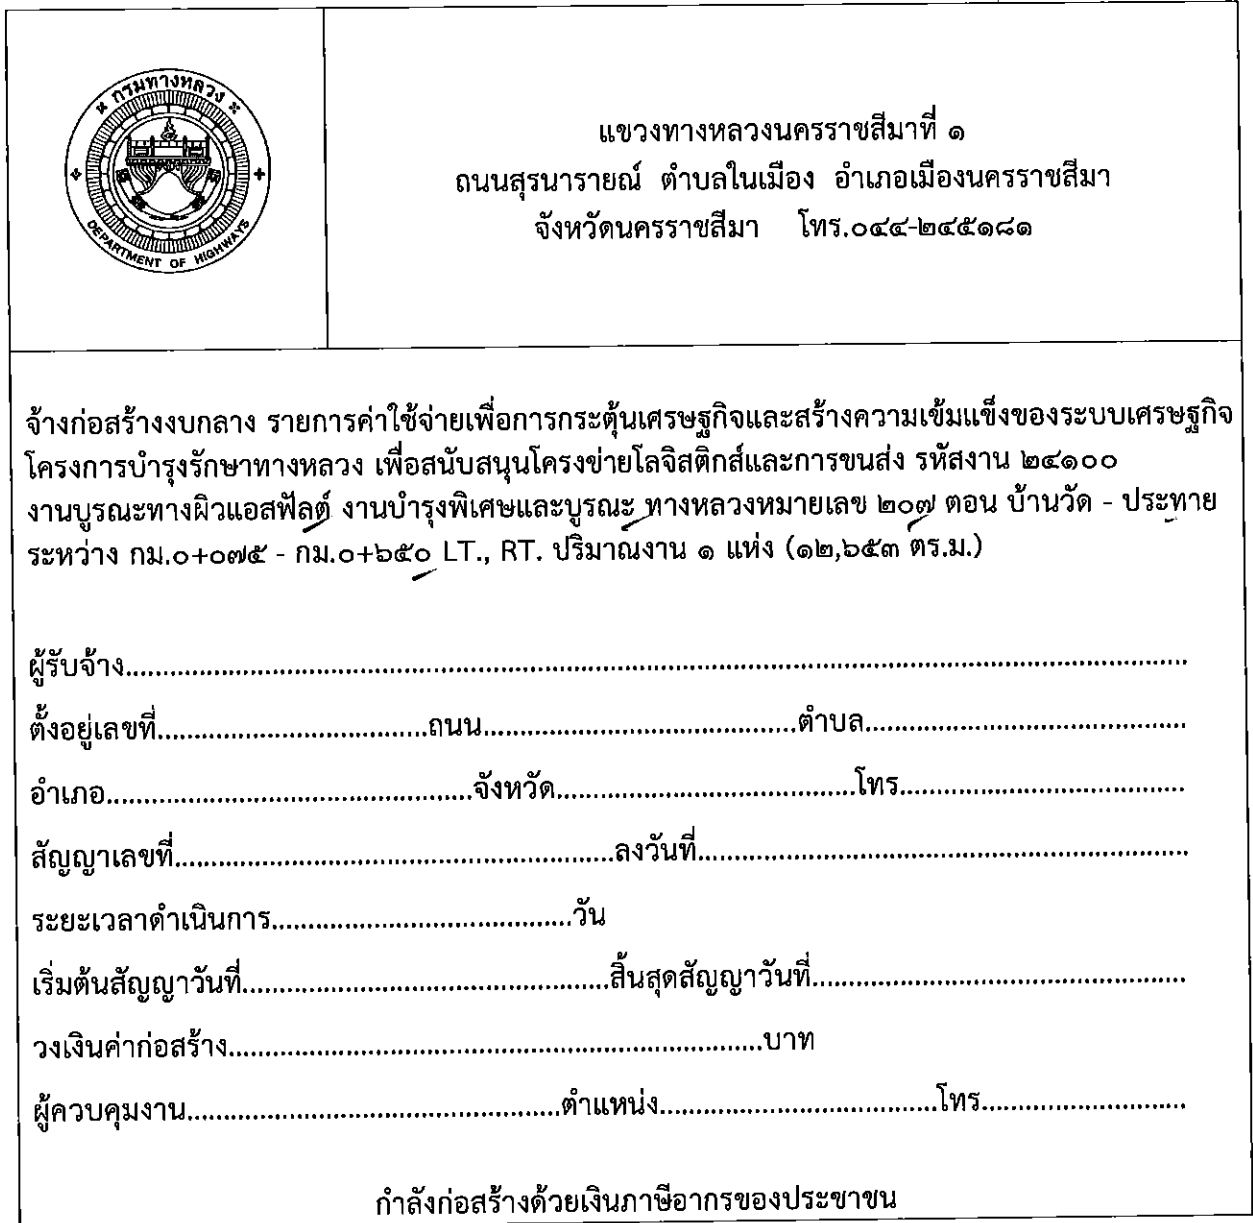 กรมทางหลวง
DEPARTMENT OF HIGHWAYS
แขวงทางหลวงนครราชสีมาที่ ๑
ถนนสุรนารายณ์ ตำบลในเมือง อำเภอเมืองนครราชสีมา
จังหวัดนครราชสีมา โทร.๐๔๔-๒๔๕๑๘๑
จ้างก่อสร้างงบกลาง รายการค่าใช้จ่ายเพื่อการกระตุ้นเศรษฐกิจและสร้างความเข้มแข็งของระบบเศรษฐกิจ
โครงการบำรุงรักษาทางหลวง เพื่อสนับสนุนโครงข่ายโลจิสติกส์และการขนส่ง รหัสงาน ๒๔๑๐๐
งานบูรณะทางผิวแอสฟัลต์ งานบำรุงพิเศษและบูรณะ ทางหลวงหมายเลข ๒๐๗ ตอน บ้านวัด - ประทาย
ระหว่าง กม.๐+๐๗๕ - กม.๐+๖๕๐ LT., RT. ปริมาณงาน ๑ แห่ง (๑๒,๖๕๓ ตร.ม.)
ผู้รับจ้าง........................................................................................................
ตั้งอยู่เลขที่....................................ถนน..........................................ตำบล...........................................
อำเภอ.................................................จังหวัด........................................โทร......................................
สัญญาเลขที่...........................................................ลงวันที่..................................................................
ระยะเวลาดำเนินการ........................................วัน
เริ่มต้นสัญญาวันที่.................................................สิ้นสุดสัญญาวันที่..................................................
วงเงินค่าก่อสร้าง.......................................................................บาท
ผู้ควบคุมงาน..................................................ตำแหน่ง.....................................โทร...........................
กำลังก่อสร้างด้วยเงินภาษีอากรของประชาชน